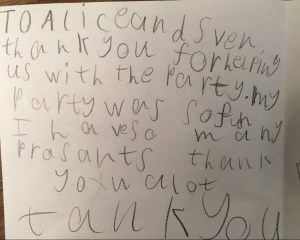 TO Alice and Sven
thank you for helping
us with the party. my
party was so fun
I have so many
prasants thank
you a lot
tank you